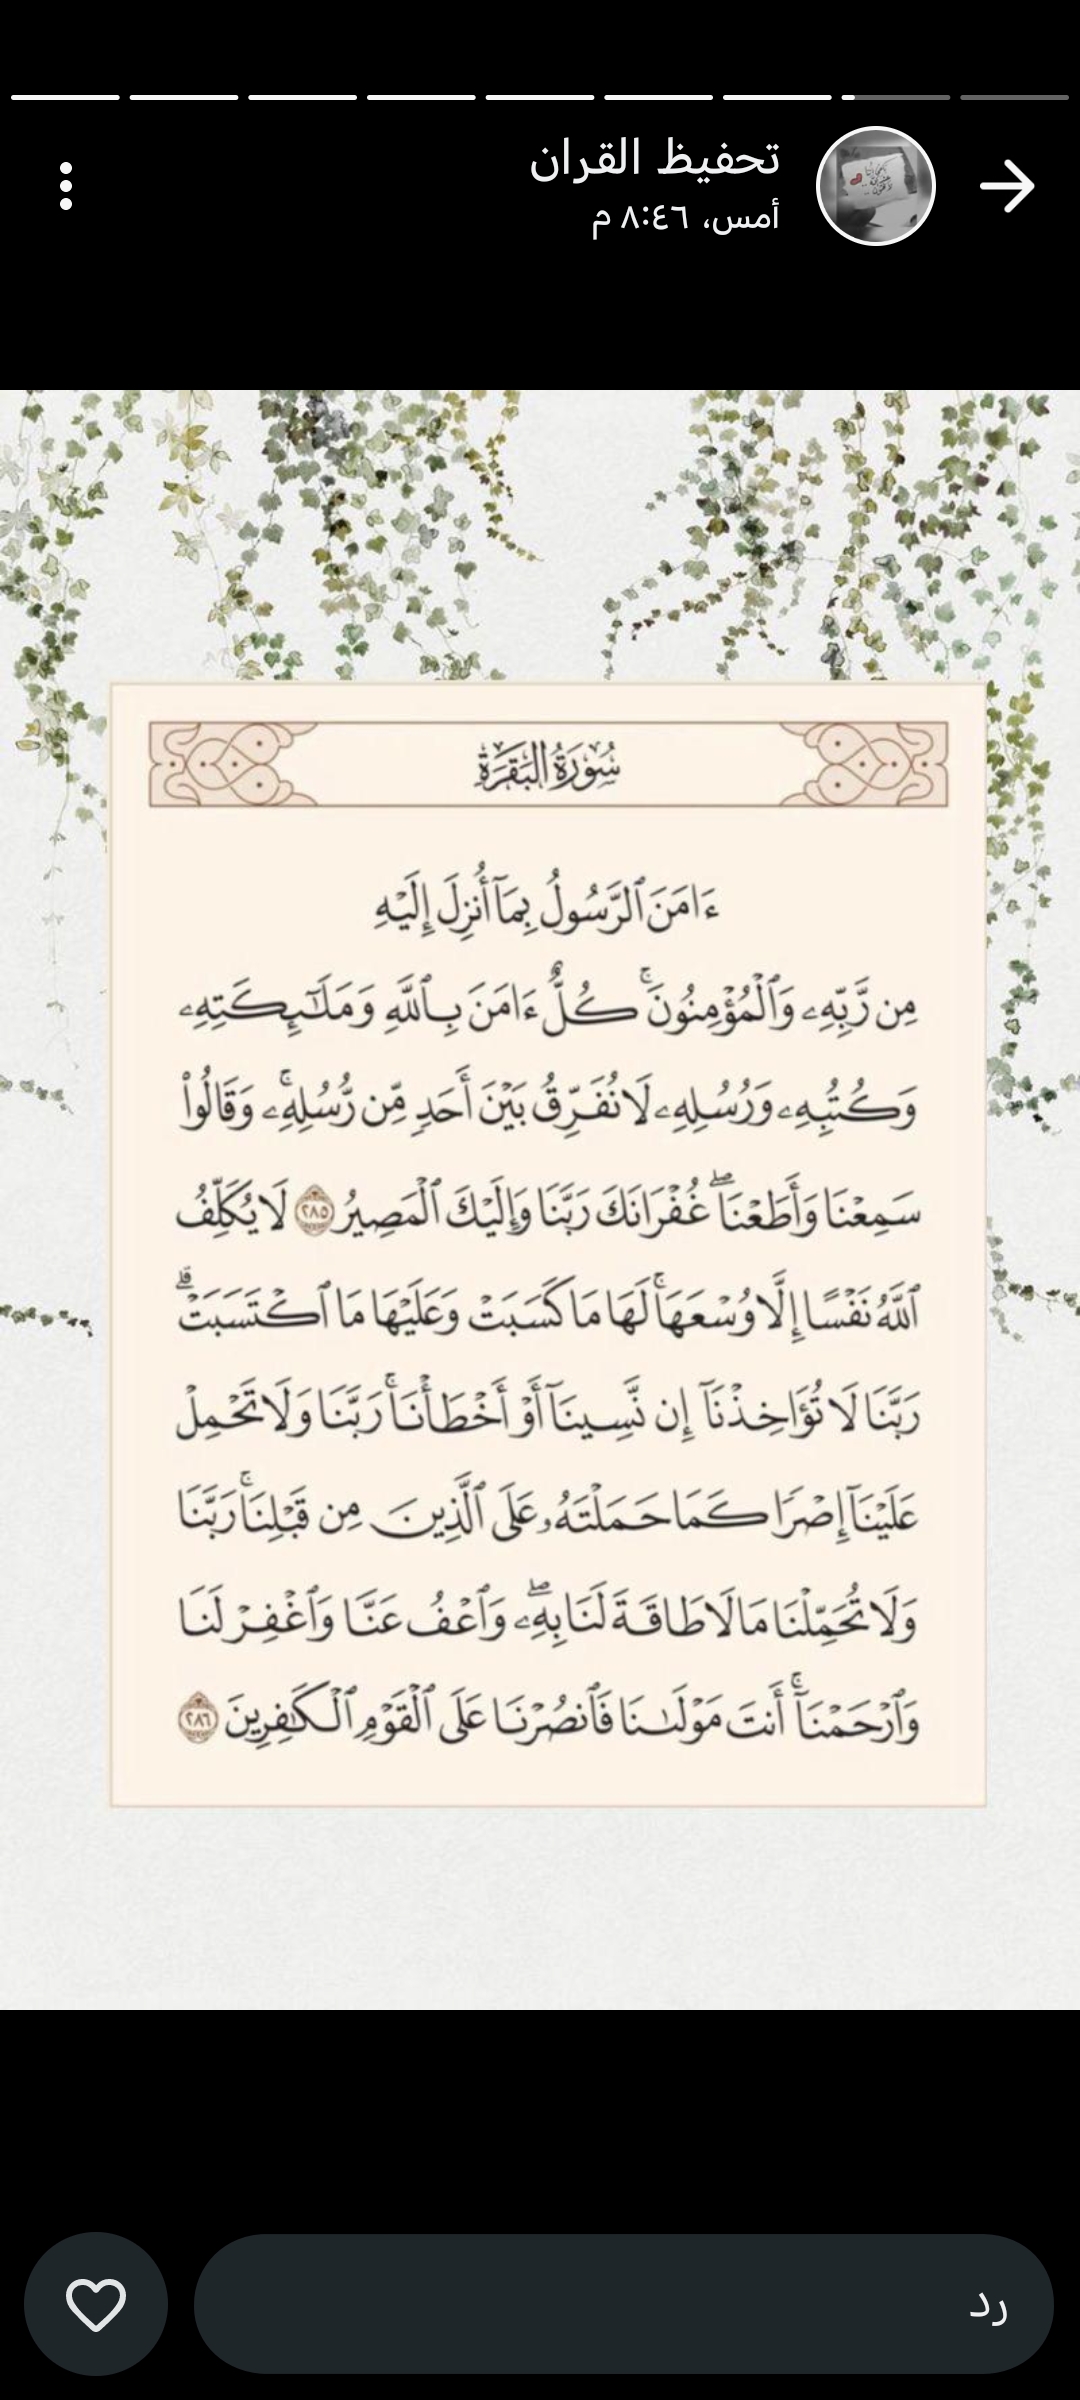 تحفيظ القران
أمس، ٨:٤٦ م
سُورَةُ البَقَرَةِ
ءَامَنَ ٱلرَّسُولُ بِمَآ أُنزِلَ إِلَيْهِ
مِن رَّبِّهِۦ وَٱلْمُؤْمِنُونَ ۚ كُلٌّ ءَامَنَ بِٱللَّهِ وَمَلَـٰٓئِكَتِهِۦ
وَكُتُبِهِۦ وَرُسُلِهِۦ لَا نُفَرِّقُ بَيْنَ أَحَدٍ مِّن رُّسُلِهِۦ ۚ وَقَالُوا۟
سَمِعْنَا وَأَطَعْنَا ۖ غُفْرَانَكَ رَبَّنَا وَإِلَيْكَ ٱلْمَصِيرُ ٢٨٥ لَا يُكَلِّفُ
ٱللَّهُ نَفْسًا إِلَّا وُسْعَهَا ۚ لَهَا مَا كَسَبَتْ وَعَلَيْهَا مَا ٱكْتَسَبَتْ ۗ
رَبَّنَا لَا تُؤَاخِذْنَآ إِن نَّسِينَآ أَوْ أَخْطَأْنَا ۚ رَبَّنَا وَلَا تَحْمِلْ
عَلَيْنَآ إِصْرًا كَمَا حَمَلْتَهُۥ عَلَى ٱلَّذِينَ مِن قَبْلِنَا ۚ رَبَّنَا
وَلَا تُحَمِّلْنَا مَا لَا طَاقَةَ لَنَا بِهِۦ ۖ وَٱعْفُ عَنَّا وَٱغْفِرْ لَنَا
وَٱرْحَمْنَآ ۚ أَنتَ مَوْلَىٰنَا فَٱنصُرْنَا عَلَى ٱلْقَوْمِ ٱلْكَـٰفِرِينَ ٢٨٦
رد